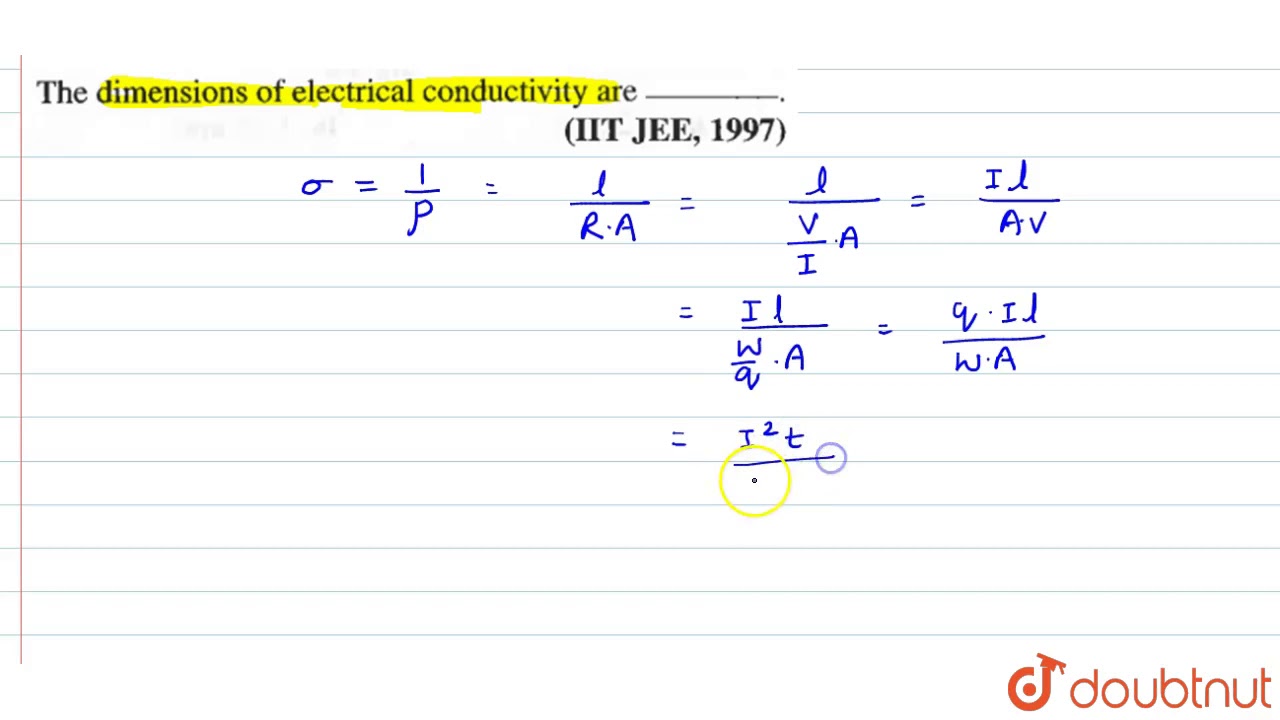 The dimensions of electrical conductivity are ________.
(IIT JEE, 1997)
σ = 1/ρ = l/(R·A) = l/((V/I)·A) = Il/(A·V)
= Il/((W/q)·A) = q·Il/(W·A)
= I²t
doubtnut